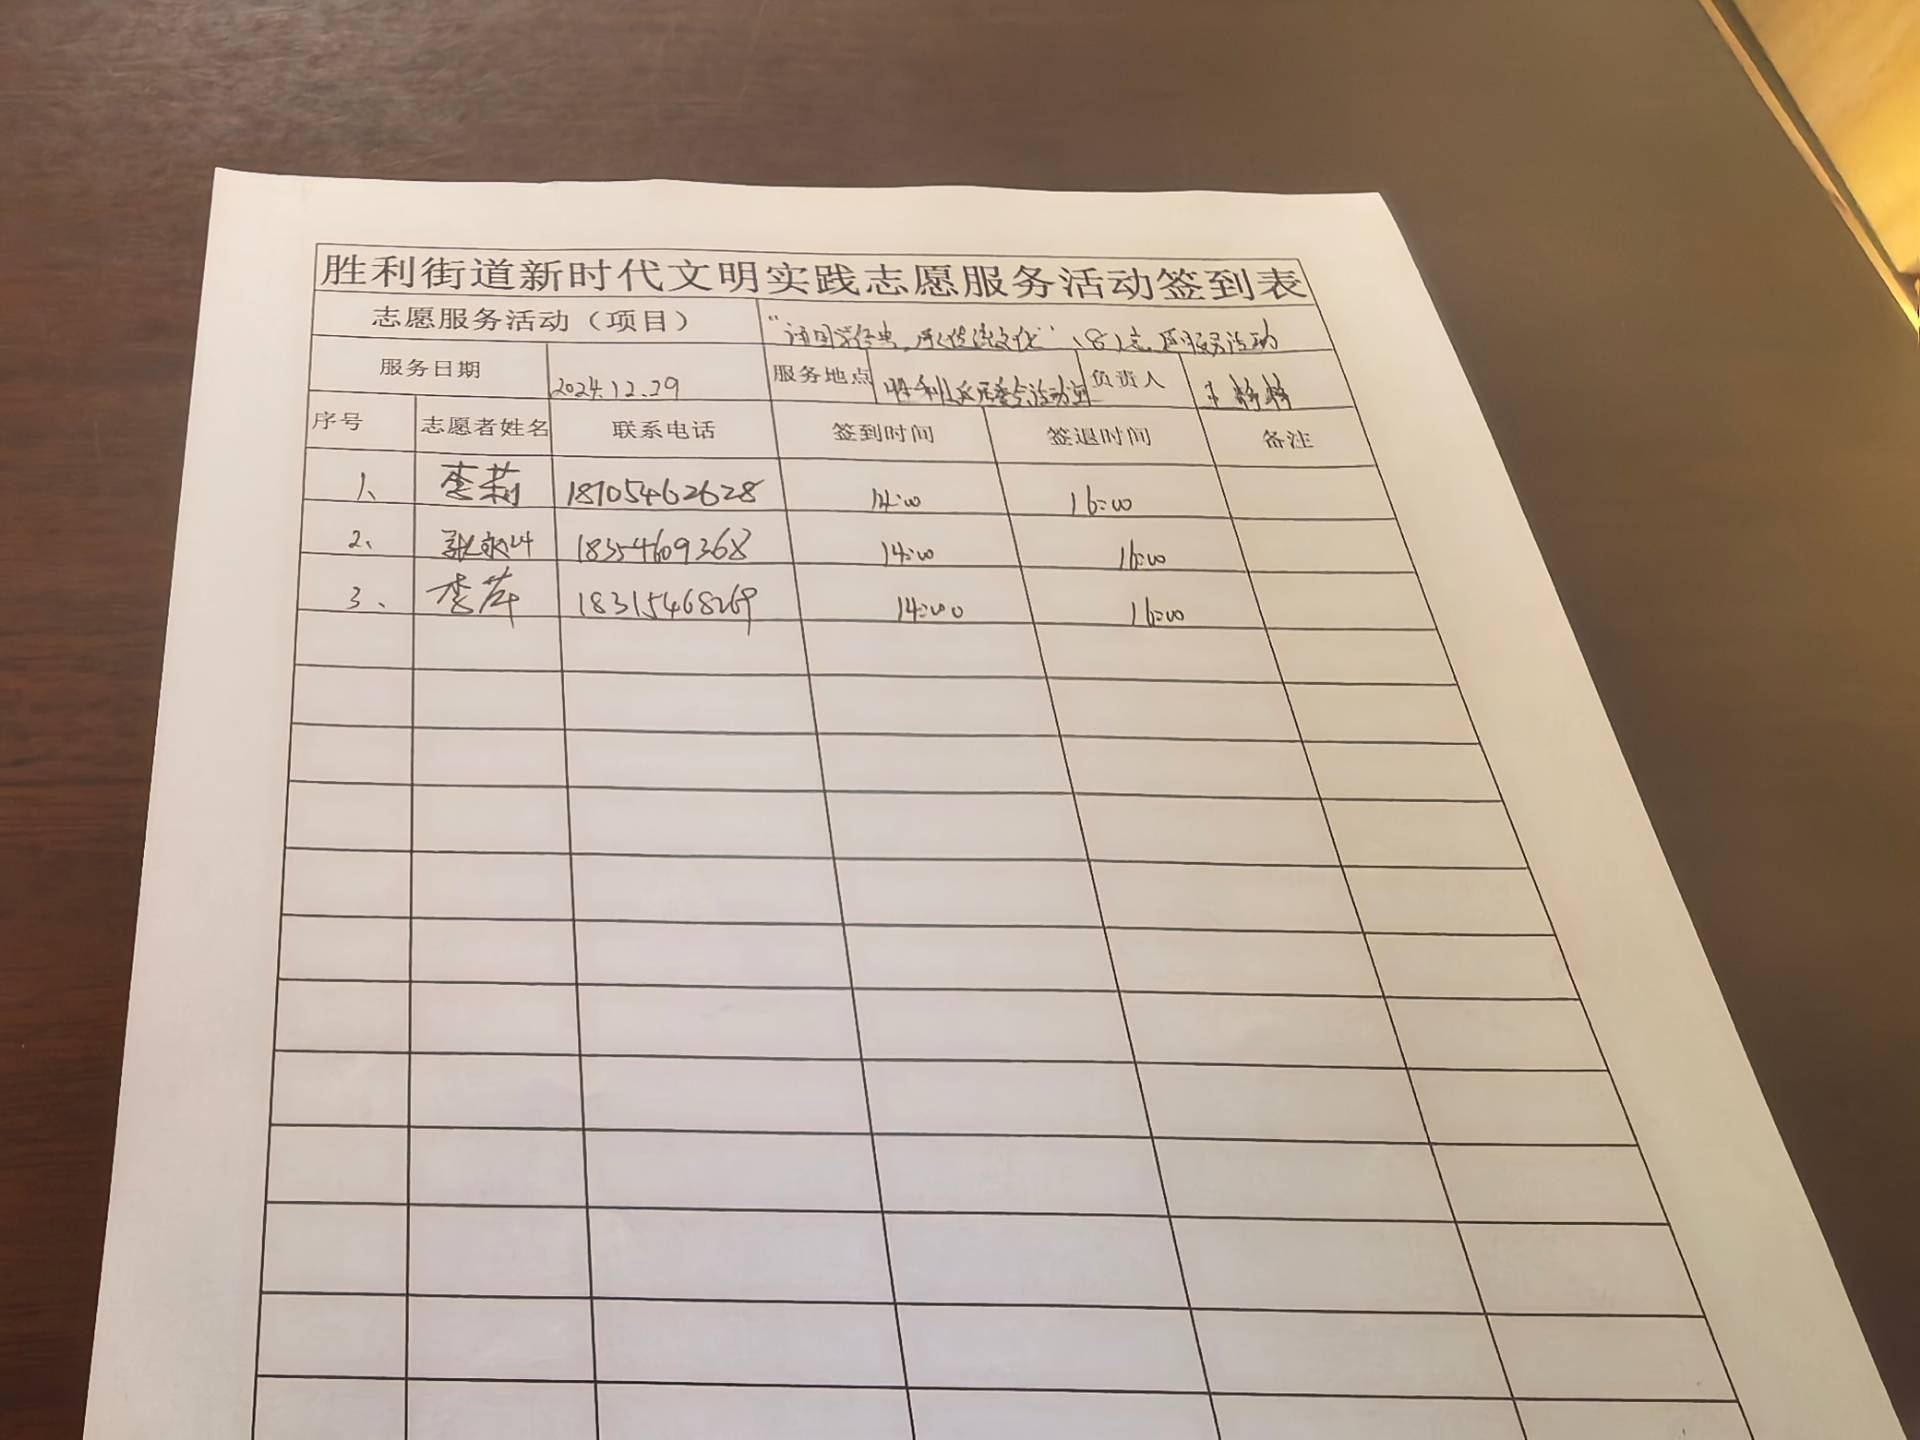 胜利街道新时代文明实践志愿服务活动签到表
志愿服务活动（项目） “诵国学经典，承传统文化”（8）志愿服务活动
服务日期 2024.12.29 服务地点 胜利社区居委会活动室 负责人 王婷婷
序号 志愿者姓名 联系电话 签到时间 签退时间 备注
1、 李莉 18705462628 14:00 16:00
2、 18354609368 14:00 16:00
3、 李萍 18315468269 14:000 16:00